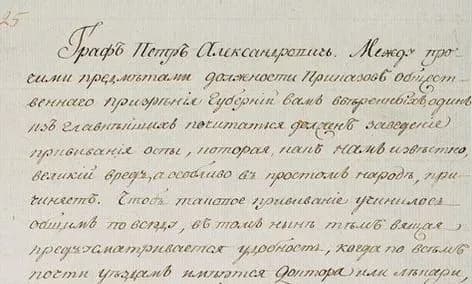 25
Графъ Петръ Александровичь. Между про-
чими предмѣтами должности Приказовъ общест-
веннаго призрѣнія Губерній вамъ ввѣренныхъ одинъ
изъ главнѣйшихъ почитаться долженъ заведеніе
прививанія оспы, которая, какъ намъ извѣстно,
великій вредъ, а особливо въ простомъ народѣ, при-
чиняетъ. Чтобъ таковое прививаніе учинилось
общимъ повсюду, въ томъ нынѣ тѣмъ вящая
предусматривается удобность, когда по всѣмъ
почти уѣздамъ имѣются Доктора или лѣкари,